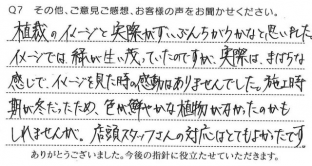 Q7 その他、ご意見ご感想、お客様の声をお聞かせください。
植裁のイメージと実際がずいぶんちがうかなと思いました。
イメージでは、緑が生い茂っていたのですが、実際は、まばらな
感じで、イメージを見た時の感動はありませんでした。施工時
期が冬だったため、色が鮮やかな植物がなかったのかも
しれませんが、店頭スタッフさんの対応はとてもよかったです。
ありがとうございました。今後の指針に役立たせていただきます。